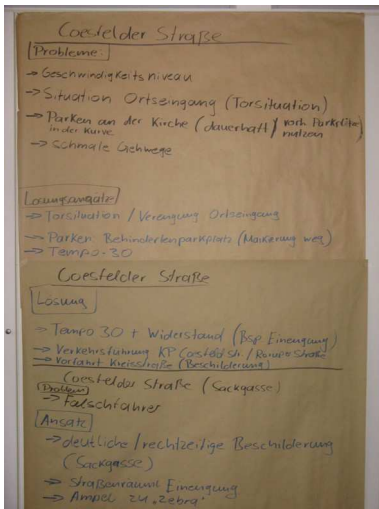 Coesfelder Straße
Probleme:
→ Geschwindigkeitsniveau
→ Situation Ortseingang (Torsituation)
→ Parken an der Kirche (dauerhaft / vorh. Parkplätze
in der Kurve nutzen)
→ schmale Gehwege
Lösungsansätze
→ Torsituation / Verengung Ortseingang
→ Parken: Behindertenparkplatz (Markierung weg)
→ Tempo-30
Coesfelder Straße
Lösung
→ Tempo 30 + Widerstand (Bsp. Einengung)
→ Verkehrsführung KP Coesfeld.str. / Straße
→ Vorfahrt Kreisstraße (Beschilderung)
Coesfelder Straße (Sackgasse)
Problem
→ Falschfahrer
Ansatz
→ deutliche / rechtzeitige Beschilderung
(Sackgasse)
→ Straßenräuml. Einengung
→ Ampel zu "Zebra"